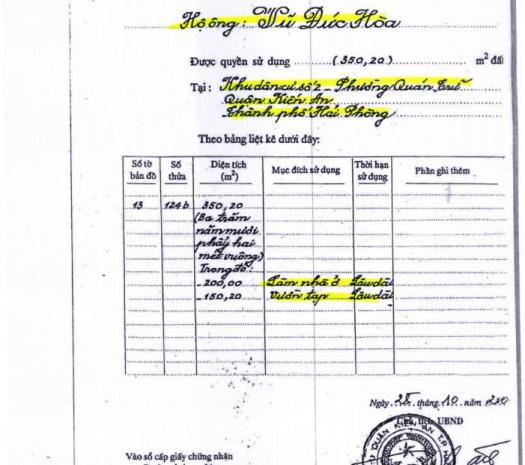 Hộ ông: Vũ Đức Hòa
Được quyền sử dụng (350,20) m² đất
Tại: Khu dân cư số 2 - Phường Quán Trữ
Quận Kiến An
Thành phố Hải Phòng
Theo bảng liệt kê dưới đây:
Số tờ bản đồ Số thửa Diện tích (m²) Mục đích sử dụng Thời hạn sử dụng Phần ghi thêm
13 124b 350,20
(Ba trăm
năm mươi
phẩy hai
mét vuông)
Trong đó:
200,00 Làm nhà ở Lâu dài
150,20 Vườn tạp Lâu dài
Ngày 25 tháng 10 năm
UBND
QUẬN KIẾN AN T.P
Vào sổ cấp giấy chứng nhận